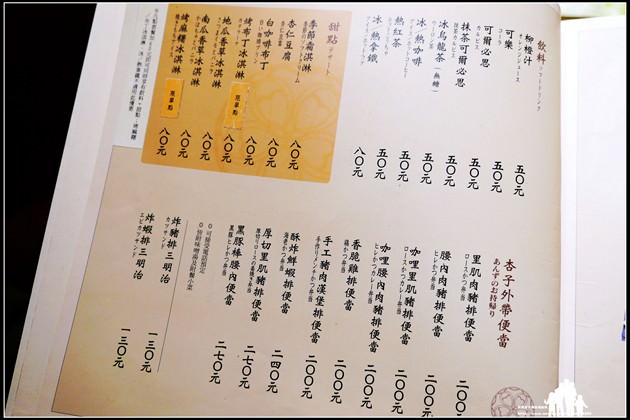 飲料
ソフトドリンク
柳橙汁
オレンジジュース
五〇元
可樂
コーラ
五〇元
可爾必思
カルピス
五〇元
抹茶可爾必思
抹茶カルピス
五〇元
冰烏龍茶（無糖）
ウーロン茶
五〇元
冰／熱咖啡
五〇元
熱紅茶
五〇元
冰／熱拿鐵
八〇元
甜點
デザート
季節霜淇淋
季節のソフトクリーム
八〇元
杏仁豆腐
八〇元
白咖啡布丁
八〇元
烤布丁冰淇淋
限單點
八〇元
地瓜香草冰淇淋
八〇元
南瓜香草冰淇淋
八〇元
烤麻糬冰淇淋
限單點
八〇元
杏子外帶便當
あんずのお持帰り
里肌肉豬排便當
ロースかつ弁当
二〇〇元
腰內肉豬排便當
ヒレかつ弁当
二〇〇元
咖哩里肌豬排便當
ロースかつカレー弁当
二〇〇元
咖哩腰內肉豬排便當
ヒレかつカレー弁当
二〇〇元
香脆雞排便當
鶏かつ弁当
二〇〇元
手工豬肉漢堡排便當
手作りメンチかつ弁当
二〇〇元
酥炸鮮蝦排便當
海老かつ弁当
二四〇元
厚切里肌豬排便當
厚切りロースかつ弁当
二七〇元
黑豚棒腰內便當
二七〇元
◎可接受電話預定
◎皆附味噌湯及附餐小菜
炸豬排三明治
カツサンド
一三〇元
炸蝦排三明治
エビカツサンド
一三〇元